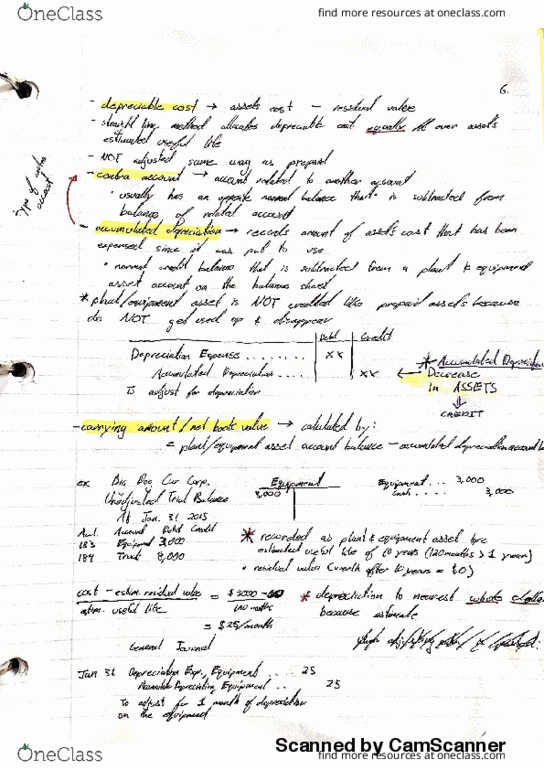 OneClass
find more resources at oneclass.com
6.
- depreciable cost → assets cost - residual value
- straight line method allocates depreciable cost equally over asset's
estimated useful life
- NOT adjusted same way as prepaid
- contra account → account related to another account
• usually has an opposite normal balance that is subtracted from
balance of related account
Type of contra
account
- accumulated depreciation → records amount of asset's cost that has been
expensed since it was put to use
• normal credit balance that is subtracted from a plant & equipment
asset account on the balance sheet
* plant/equipment asset is NOT credited like prepaid assets because
do NOT get used up & disappear
Debit Credit
Depreciation Expense ........ xx
Accumulated Depreciation ..... xx
To adjust for depreciation
* Accumulated Depreciation
Decrease
in ASSETS
CREDIT
- carrying amount/net book value → calculated by:
= plant/equipment asset account balance - accumulated depreciation account
ex Big Dog Car Corp.
Unadjusted Trial Balance
Jan. 31 2015
Acct. Account Debit Credit
183 Equipment 3,000
184 Truck 8,000
Equipment
3,000
Equipment ... 3,000
Cash .... 3,000
* recorded as plant & equipment asset
estimated useful life of 10 years (120 months > 1 year)
• residual value (worth after 10 years = $0)
cost - estim. residual value = $3000 - $0
estim. useful life 120 months
= $25/month
* depreciation to nearest whole dollar
because estimate
General Journal
Jan 31 Depreciation Exp., Equipment ... 25
Accumulated Depreciation, Equipment .. 25
To adjust for 1 month of depreciation
on the equipment
Scanned by CamScanner
OneClass
find more resources at oneclass.com